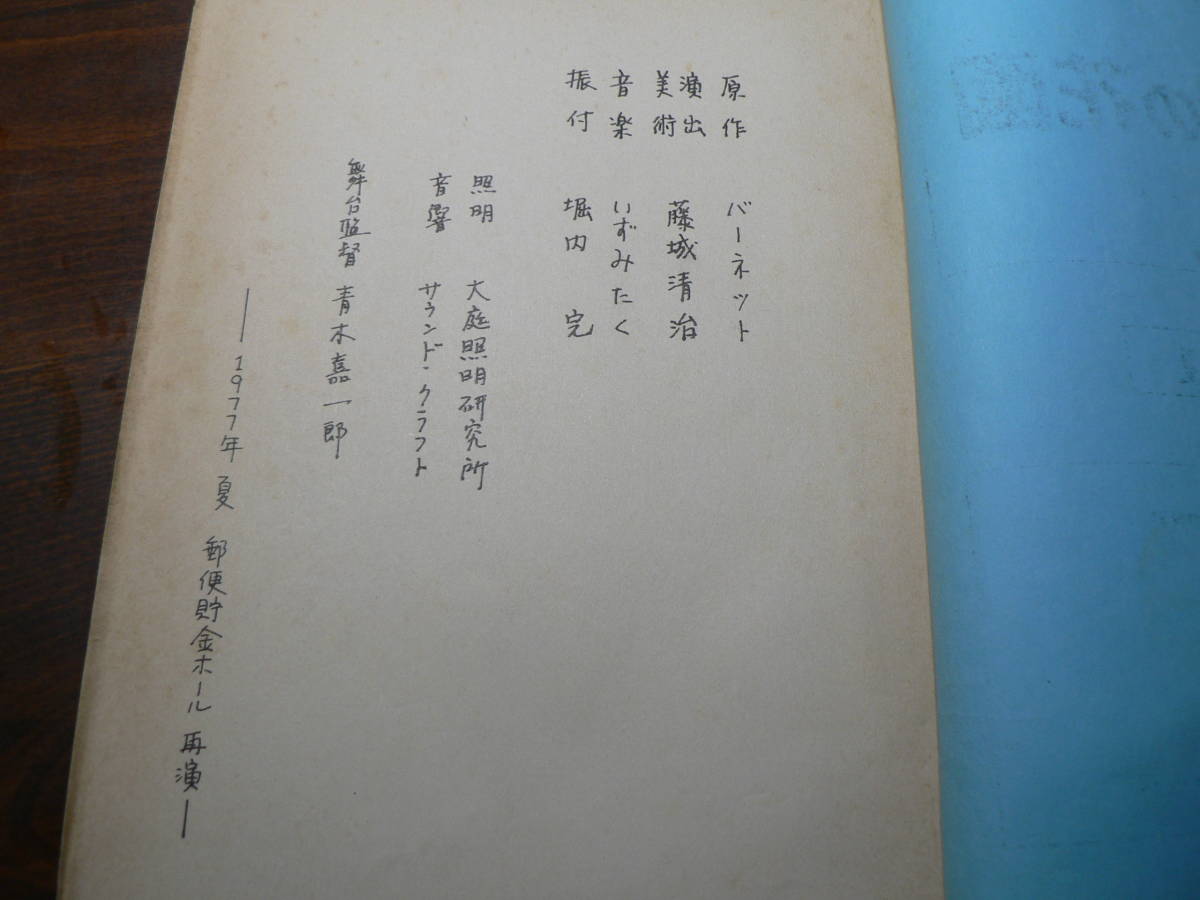 原作 バーネット
演出
美術 藤城清治
音楽 いずみたく
振付 堀内 完
照明 大庭照明研究所
音響 サウンド・クラフト
舞台監督 青木嘉一郎
――1977年 夏 郵便貯金ホール 再演――